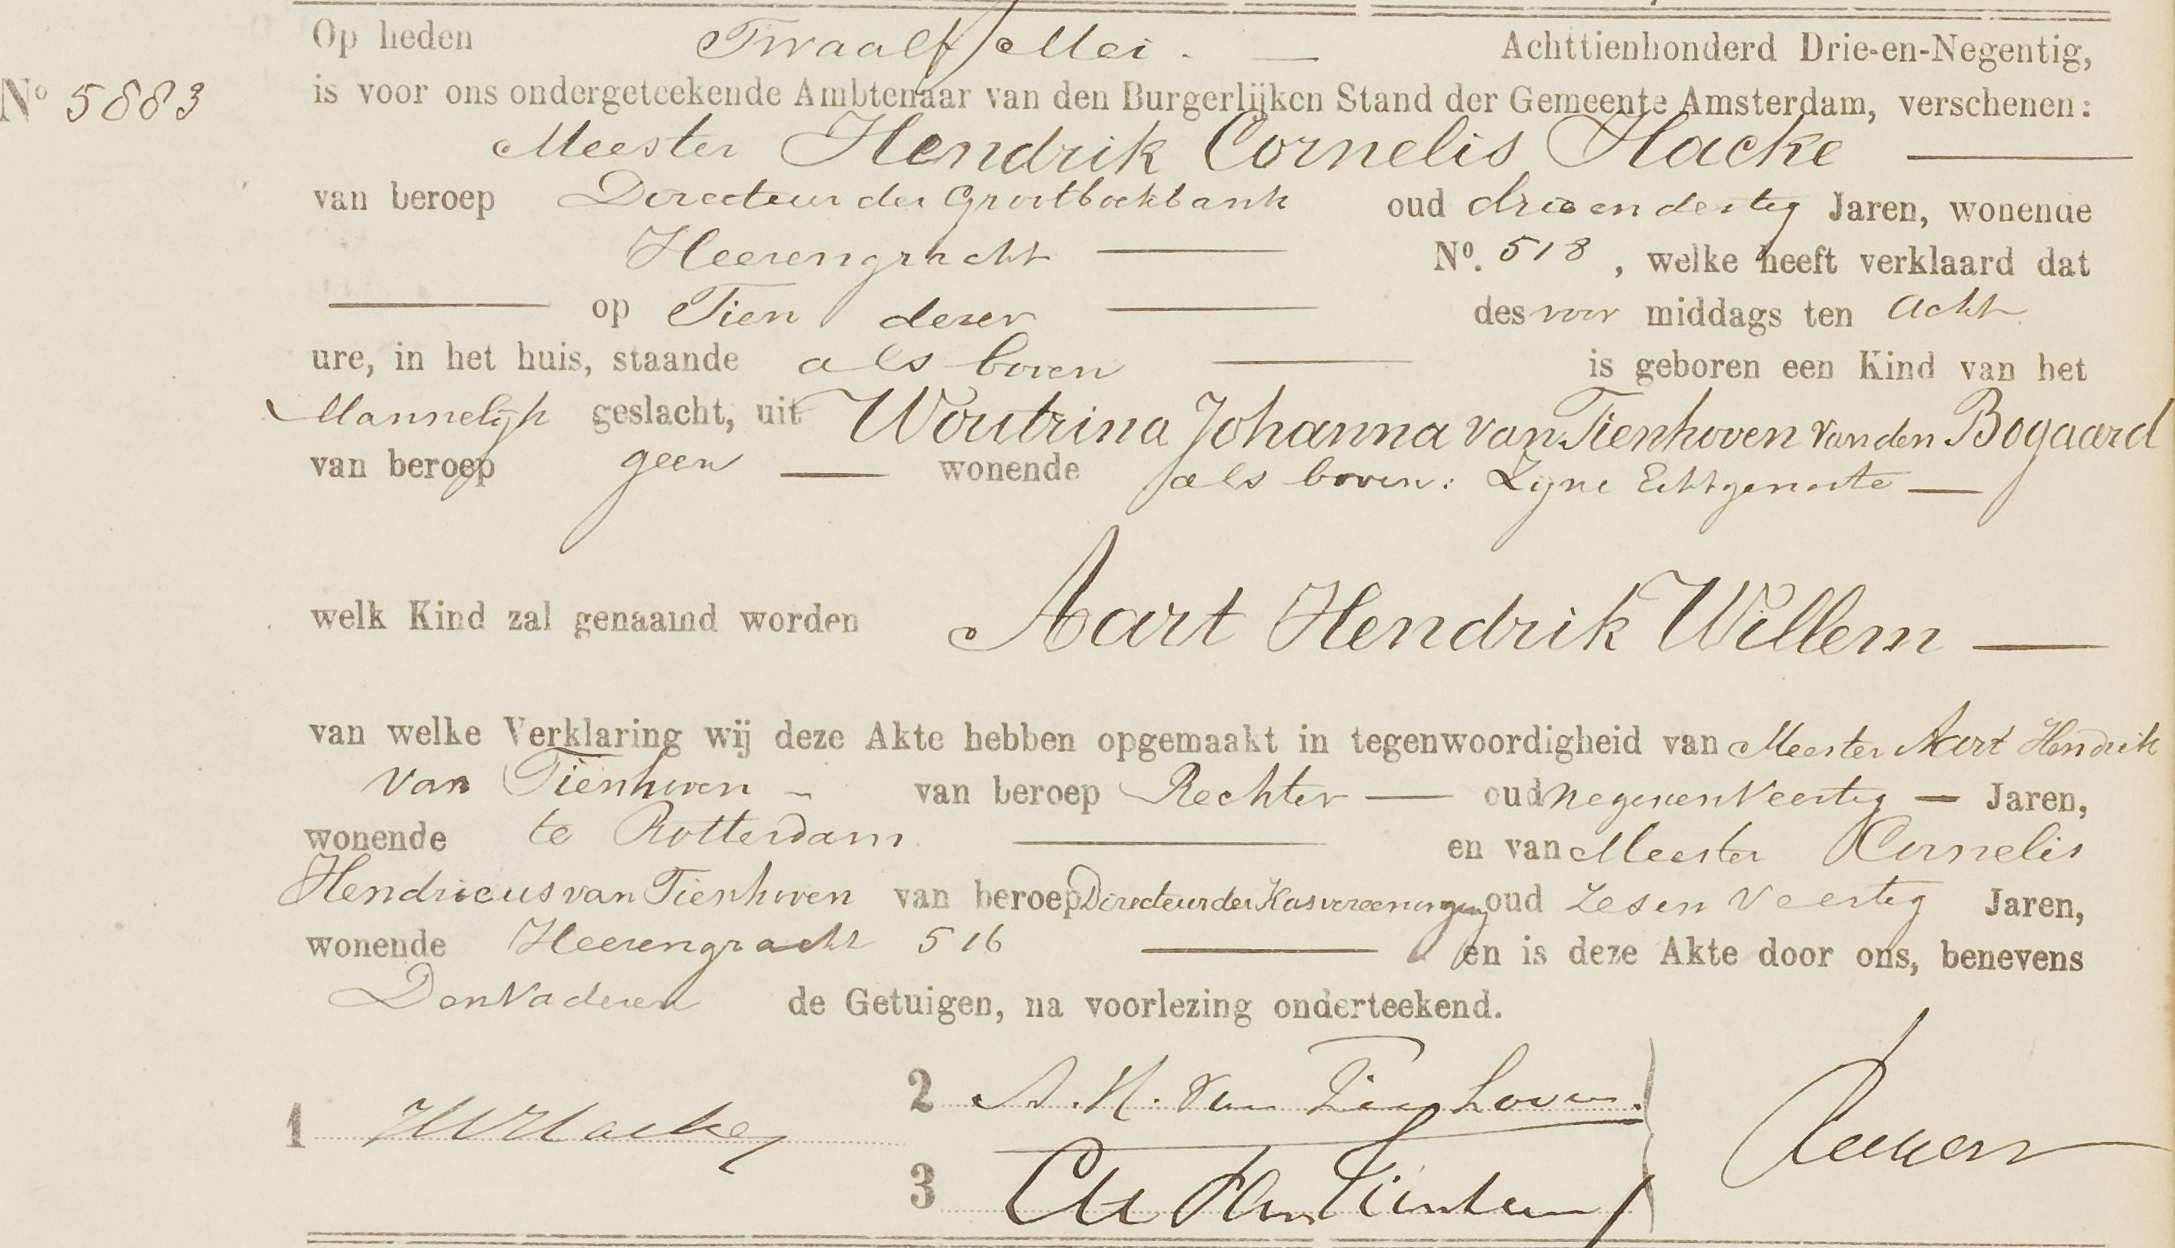 Op heden Twaalf Mei. — Achttienhonderd Drie-en-Negentig,
No 5883 is voor ons ondergeteekende Ambtenaar van den Burgerlijken Stand der Gemeente Amsterdam, verschenen:
Meester Hendrik Cornelis Hacke —
van beroep Directeur der Grootboekbank oud drie en dertig Jaren, wonende
Heerengracht — No. 518, welke heeft verklaard dat
— op Tien dezer — des voor middags ten acht
ure, in het huis, staande als boven — is geboren een Kind van het
Mannelijk geslacht, uit Woutrina Johanna van Tienhoven van den Bogaard
van beroep geen — wonende als boven: Zijne Echtgenoote —
welk Kind zal genaamd worden Aart Hendrik Willem —
van welke Verklaring wij deze Akte hebben opgemaakt in tegenwoordigheid van Meester Aart Hendrik
van Tienhoven - van beroep Rechter — oud negenenveertig — Jaren,
wonende te Rotterdam — en van Meester Cornelis
Hendricus van Tienhoven van beroep Directeur der Kasvereeniging oud zesenveertig Jaren,
wonende Heerengracht 516 — en is deze Akte door ons, benevens
Den Vader en de Getuigen, na voorlezing onderteekend.
2 A. H. van Tienhoven.
1 Hacke
3 CH van Tienhoven